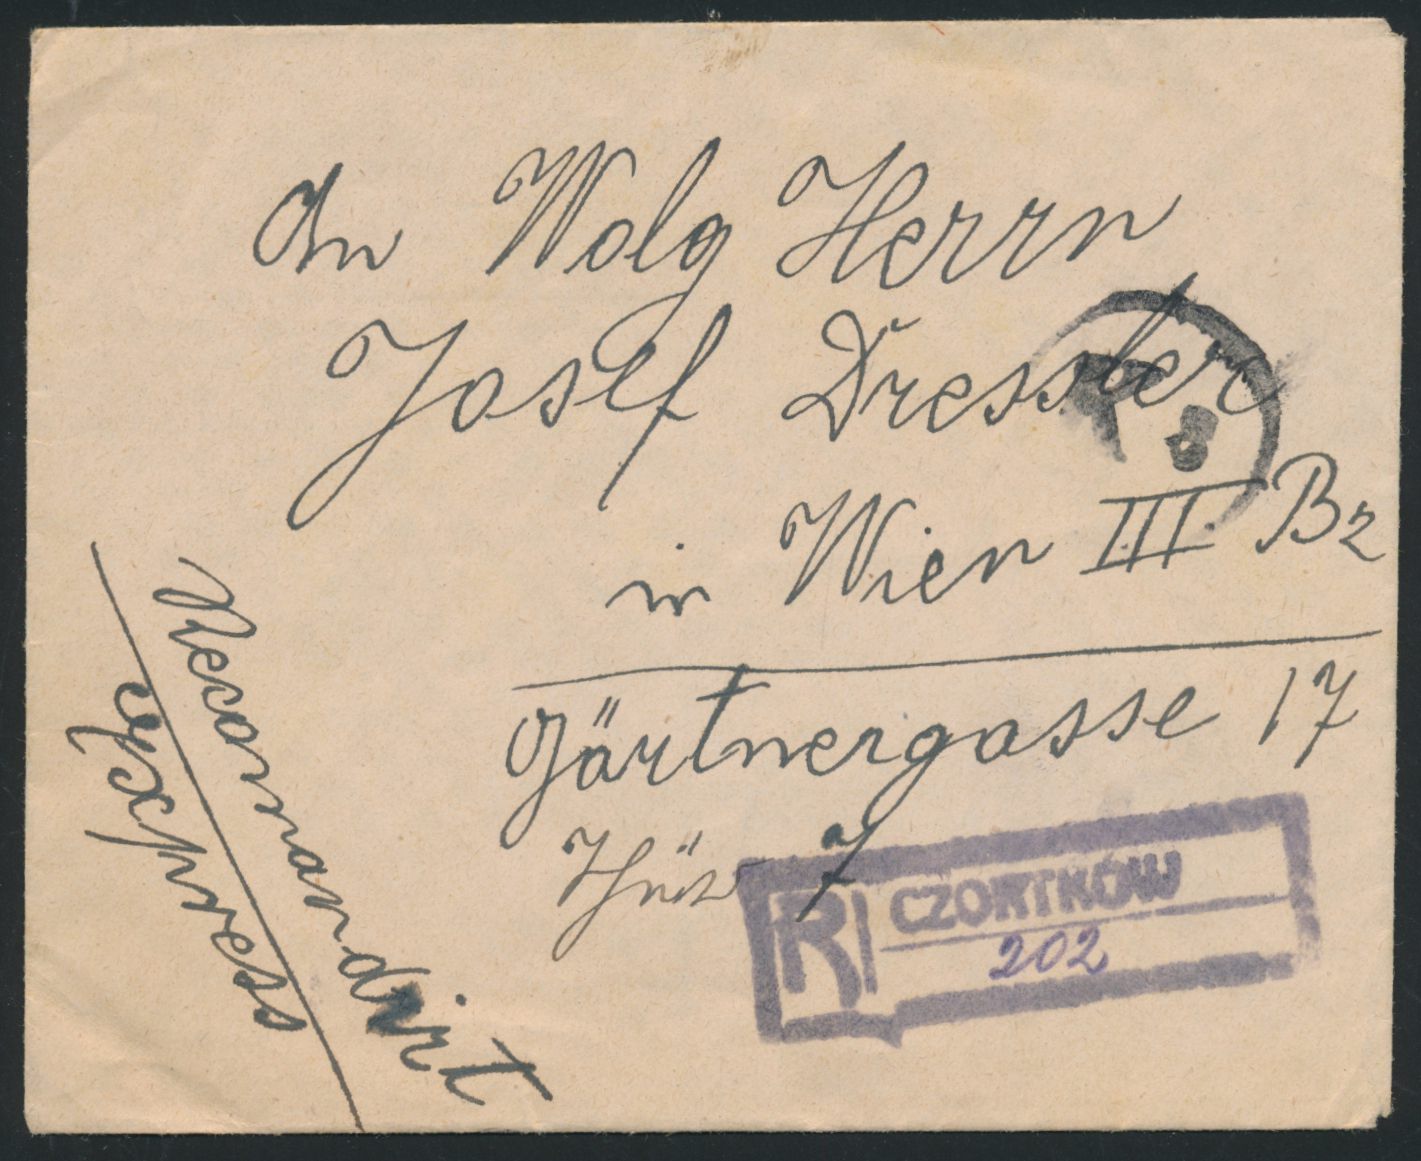 An Wolg Herrn
Josef Dressler
in Wien III. Bz
Gärtnergasse 17
Thür 7
Recomandirt
express
R CZORTKÓW
202
R
8